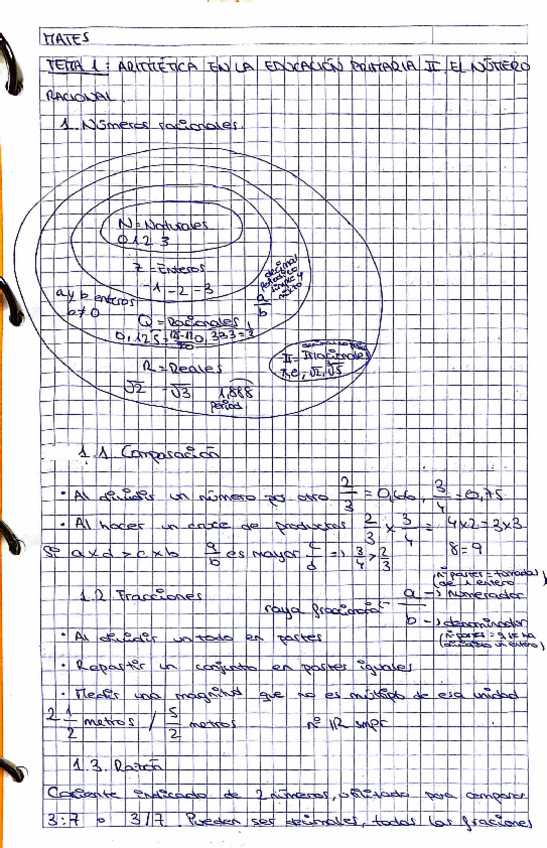 MATES
TEMA 1: ARITMÉTICA EN LA EDUCACIÓN PRIMARIA II: EL NÚMERO
RACIONAL.
1. Números racionales.
N = Naturales
0 1 2 3
Z = Enteros
-1 -2 -3
a y b enteros
b ≠ 0
decimal
periódico
simple y
mixto
a/b
Q = Racionales
0,125 = 0,333 =
II = Irracionales
π, e, √2, √5
R = Reales
√2 -√3 1,888
period
1.1. Comparación
· Al dividir un número por otro 2/3 = 0,66, 3/4 = 0,75
· Al hacer un cruce de productos 2/3 × 3/4 = 4x2 = 3x3
Si a x d > c x b a/b es mayor c/d => 3/4 > 2/3 8 = 9
1.2. Fracciones
(nº partes = tomadas
de 1 entero)
raya fraccional - a/b
a -> Numerador
b -> denominador
(nº partes = q se ha
dividido un entero)
· Al dividir un todo en partes
· Repartir un conjunto en partes iguales
· Medir una magnitud que no es múltiplo de esa unidad
2 1/2 metros / 5/2 metros nº IR smpr
1.3. Razón
Cociente indicado de 2 números, utilizado para comparar
3:7 o 3/7. Pueden ser decimales, todas las fracciones